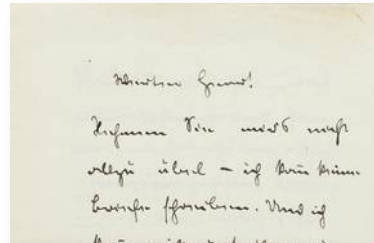 Werter Herr!
Nehmen Sie mirs nicht
allzu übel – ich kann keine
Briefe schreiben. Und ich